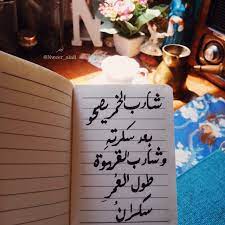 شارب الخمر يصحو
بعد سكرته
وشارب القهوة
طول العمر
سكران